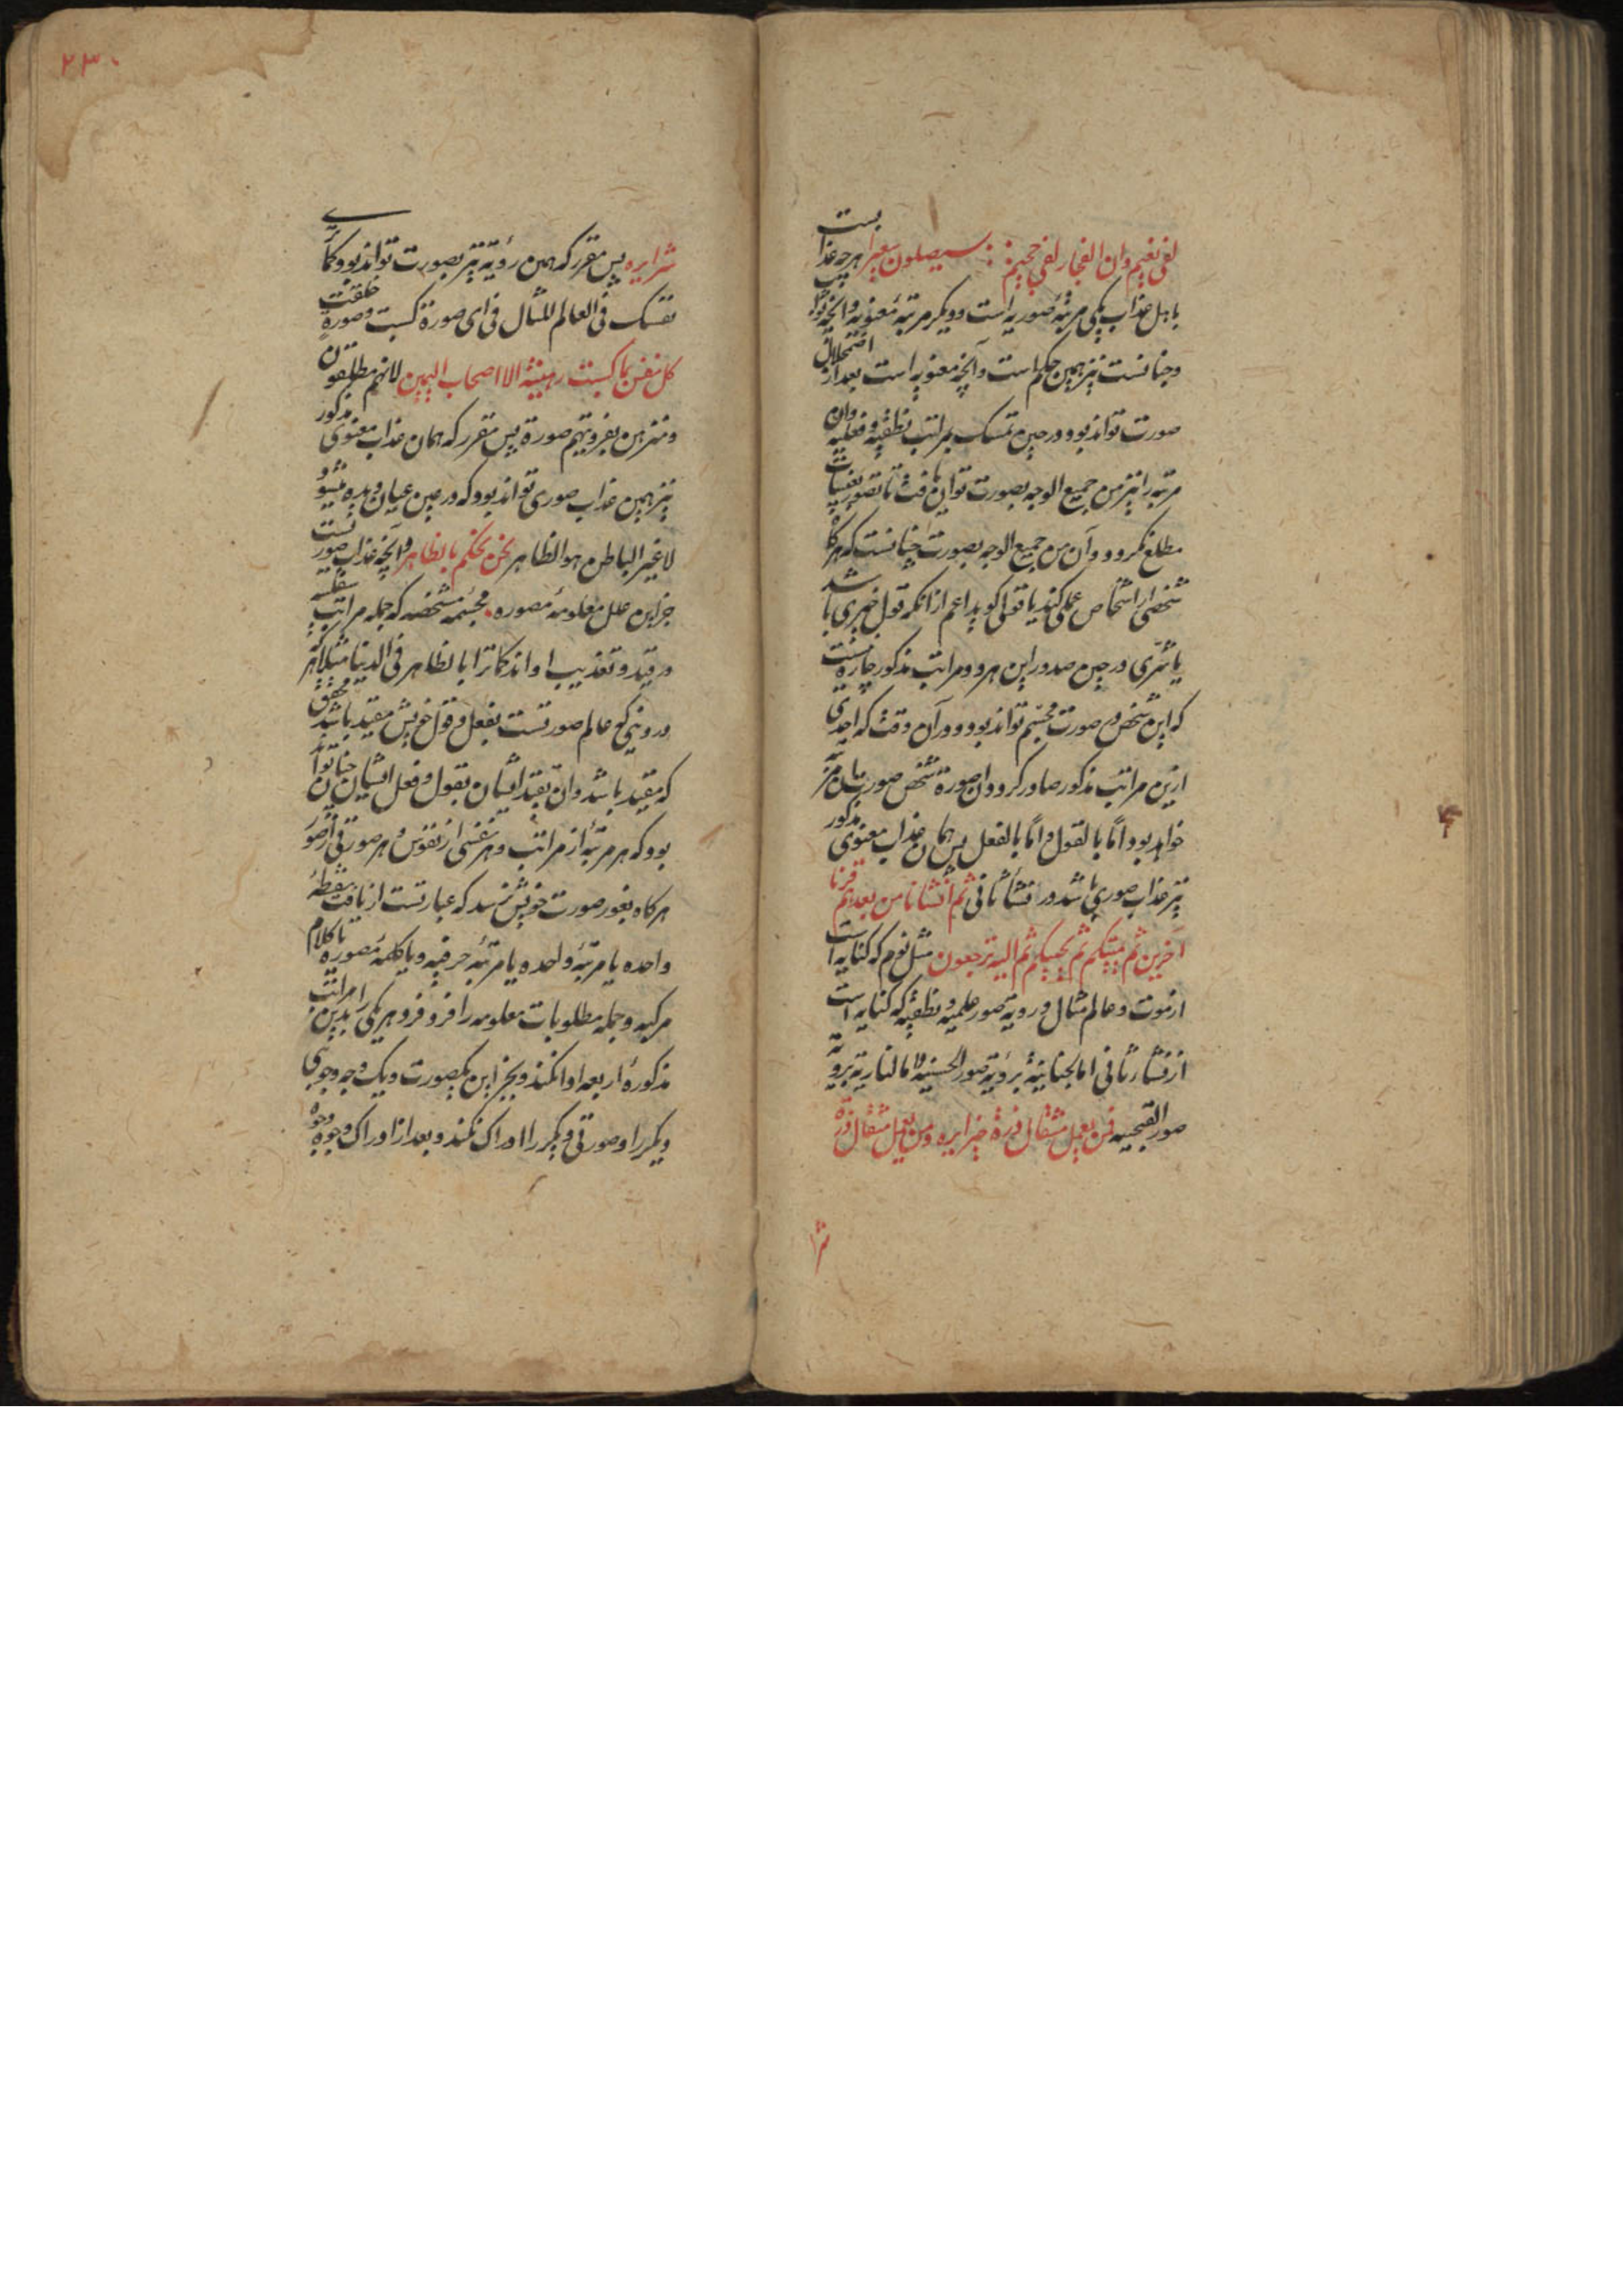 لفی نعیم وان الفجار لفی جحیم سیصلون سعیرا هر چه عذابست
با اهل عذاب یکی مرتبهٔ صوریه است و دیگر مرتبهٔ معنویه و آنچه
و جنانست نیز همین حکم است و آنچه معنویه است بعد از اضمحلال
صورت تواند بود و در حین تمسک بمراتب نطقیه و فعلیه و ان
مرتبه را نیز من جمیع الوجه بصورت توان یافت تا بتصور نفسیات
مطلع کردد و آن من جمیع الوجه بصورت چنانست که هرگاه
شخصی از اشخاص عملی کند یا قولی کوید اعم از آنکه قول خیری باشد
یا شری در حین صدور این هر دو مراتب مذکور چاره نیست
که این شخص در صورت مجسم تواند بود و در آن وقت که احدی
ازین مراتب مذکور صادر کردد ان صورة شخص صورت
خواهد بود اما بالقول و اما بالفعل پس همان عذاب معنوی مذکور
نیز عذاب صوری باشد در نشأ ثانی ثم انشانا من بعدهم قرنا
آخرین ثم یمیتکم ثم یحییکم ثم الیه ترجعون مثل نوم که کنایه است
از موت و عالم مثال و رویة صور علمیه و نطقیه که کنایه است
از نشأ ثانی اما الجنانیة برؤیة صور الحسنیه و اما الناریة برویة
صور القبیحیه فمن یعمل مثقال ذرة خیرا یره و من یعمل مثقال ذرة
شرا
۲۳۰
شرا یره پس مقرر که همین رؤیة نیز بصورت تواند بود و کما
نفسک فی العالم المثال فی ای صورة کسبت و صورة خلقت
کل نفس بما کسبت رهینة الا اصحاب الیمین لانهم مطلقون
صورة پس مقرر که همان عذاب معنوی مذکور
نیز همین عذاب صوری تواند بود که در عین عیان دیده میشود
لا غیر الباطن هو الظاهر نحن نحکم بالظاهر و آنچه عذاب صوریست
جز این علل معلومهٔ مصوره مجسمه مشخصه که جمله مراتب سفلیه
در قید و تعذیب او اند کما ترا بالظاهر فی الدنیا مثلا هر که
در دنیی که عالم صورتست بفعل و قول خویش مقید باشد محقق
که مقید باشد و ان تقید ایشان بقول و فعل ایشان چنان تواند
بود که هر مرتبهٔ از مراتب و هر نفسی از نفوس و هر صورتی از صور
هرگاه بغور صورت خویش نرسد که عبارتست از یافت نقطهٔ
واحده یا مرتبهٔ واحده یا مرتبهٔ حرفیه و یا کلمهٔ مصوره یا کلام
مرکبه و جمله مطلوبات معلومه را فرد فرد هر یکی را بدین مراتب
مذکورهٔ اربعه ادا نکند و بجز این یکصورت و یک وجه وجوهی
دیگر را و صورتی دیگر را ادراک نکند و بعد از ادراک وجوه